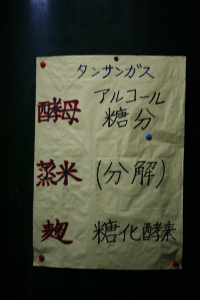 タンサンガス
アルコール
酵母 糖分
蒸米 (分解)
麹 糖化酵素